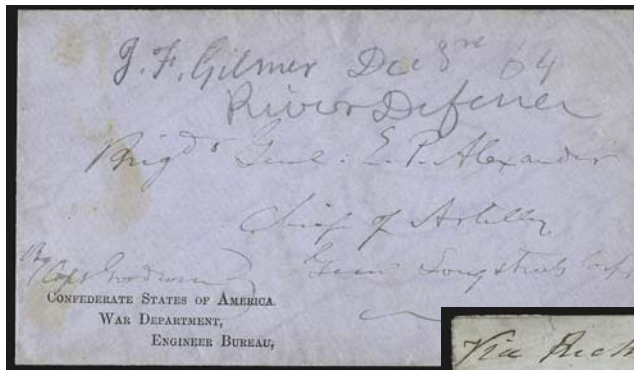 J. F. Gilmer Dec 3rd 64
River Defence
Brigdr Genl: E. P. Alexander
Chief of Artillery
By Capt Goodwin
Genl Longstreets Corps
CONFEDERATE STATES OF AMERICA.
WAR DEPARTMENT,
ENGINEER BUREAU,
Via